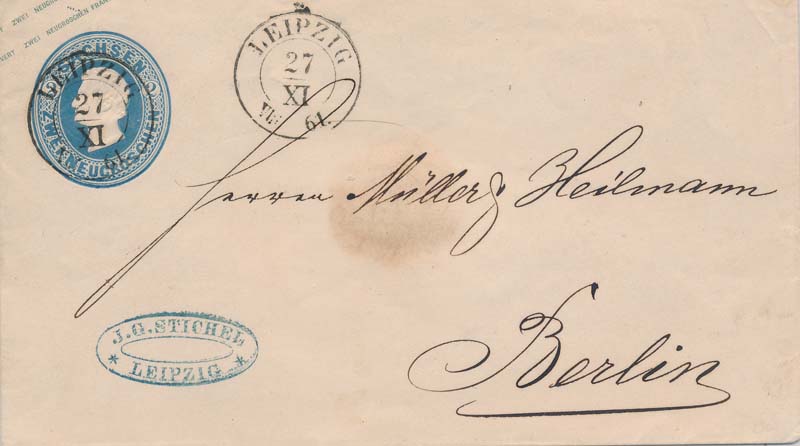 ZWEI NEUGROSCHEN FRAN
WERT ZWEI NEUGROSCHEN FRANK
SACHSEN
ZWEI NEUGROSCHEN
LEIPZIG
27
XI
61.
LEIPZIG
27
XI
61.
Herren Müller & Heilmann
Berlin
J. G. STICHEL
* LEIPZIG *